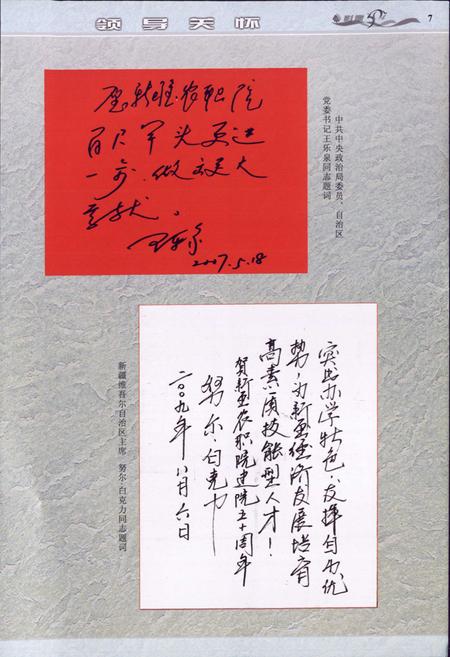 领导关怀
7
愿新疆农职院
百尺竿头更进
一步,做出更大
贡献。
王乐泉
2007.5.18
中共中央政治局委员、自治区
党委书记王乐泉同志题词
突出办学特色,发挥自身优
势,为新疆经济发展培育
高素质技能型人才!
贺新疆农职院建院五十周年
努尔·白克力
二〇〇九年八月六日
新疆维吾尔自治区主席 努尔·白克力同志题词